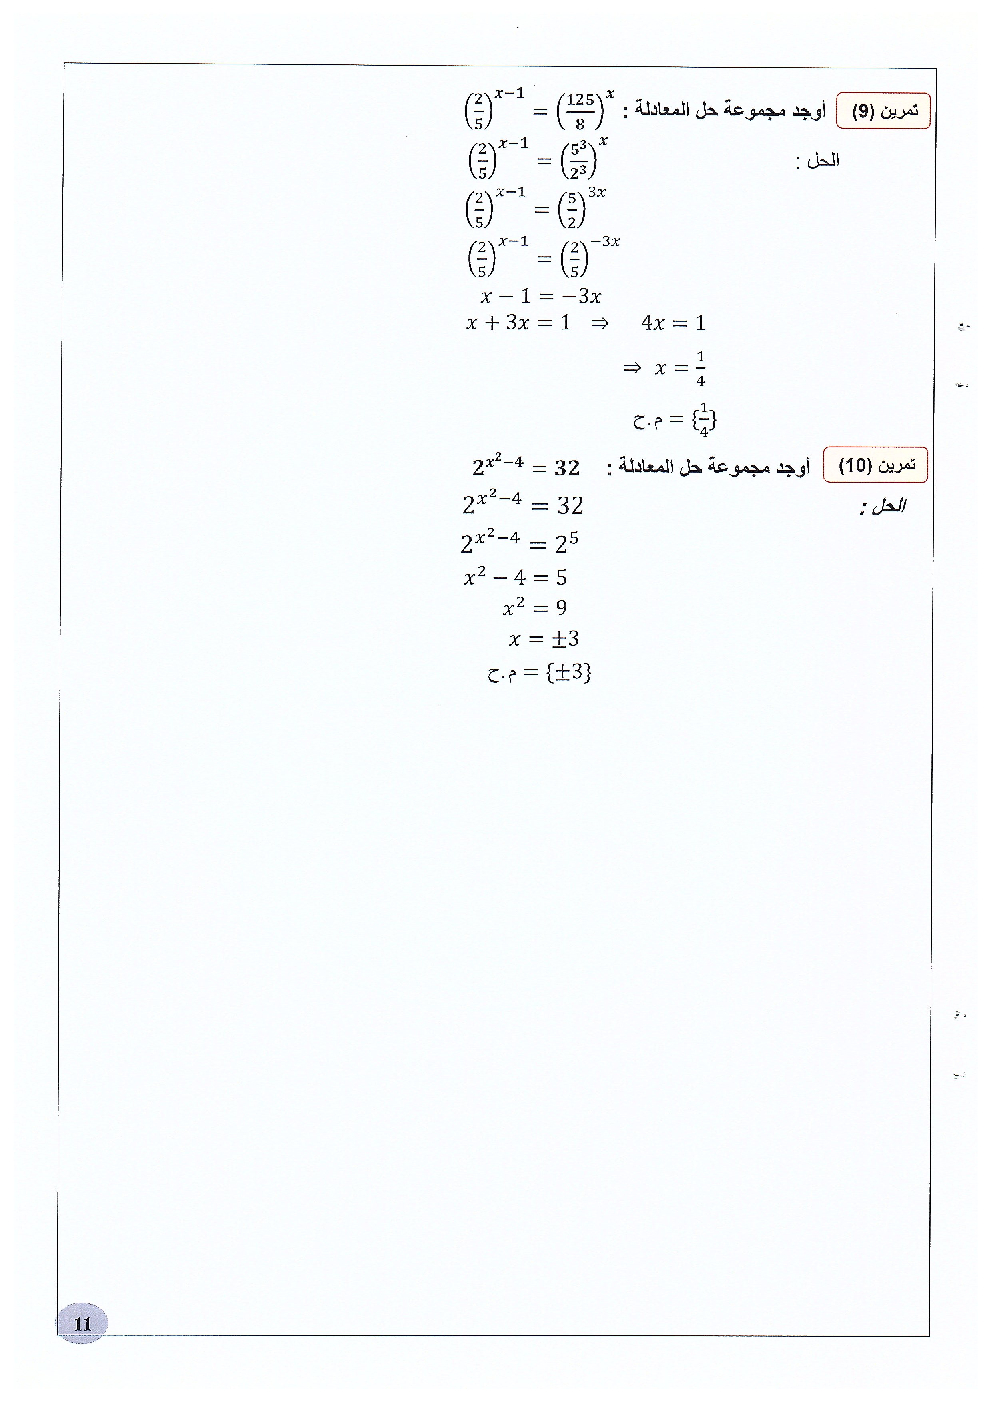 تمرين (9) أوجد مجموعة حل المعادلة : $\left(\frac{2}{5}\right)^{x-1} = \left(\frac{125}{8}\right)^{x}$
الحل : $\left(\frac{2}{5}\right)^{x-1} = \left(\frac{5^3}{2^3}\right)^{x}$
$\left(\frac{2}{5}\right)^{x-1} = \left(\frac{5}{2}\right)^{3x}$
$\left(\frac{2}{5}\right)^{x-1} = \left(\frac{2}{5}\right)^{-3x}$
$x - 1 = -3x$
$x + 3x = 1 \Rightarrow 4x = 1$
$\Rightarrow x = \frac{1}{4}$
م.ح = $\{\frac{1}{4}\}$
تمرين (10) أوجد مجموعة حل المعادلة : $2^{x^2-4} = 32$
الحل : $2^{x^2-4} = 32$
$2^{x^2-4} = 2^5$
$x^2 - 4 = 5$
$x^2 = 9$
$x = \pm 3$
م.ح = $\{\pm 3\}$
11